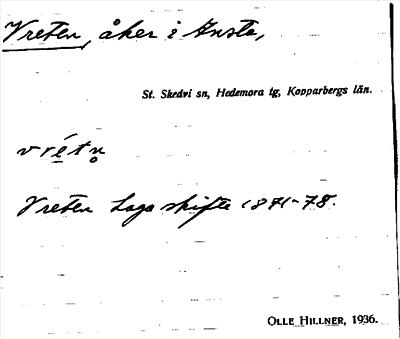 Vreten, åker i Knsta,
St. Skedvi sn, Hedemora tg, Kopparbergs län.
vrétn̥
Vreten Laga skifte 1871-78.
OLLE HILLNER, 1936.